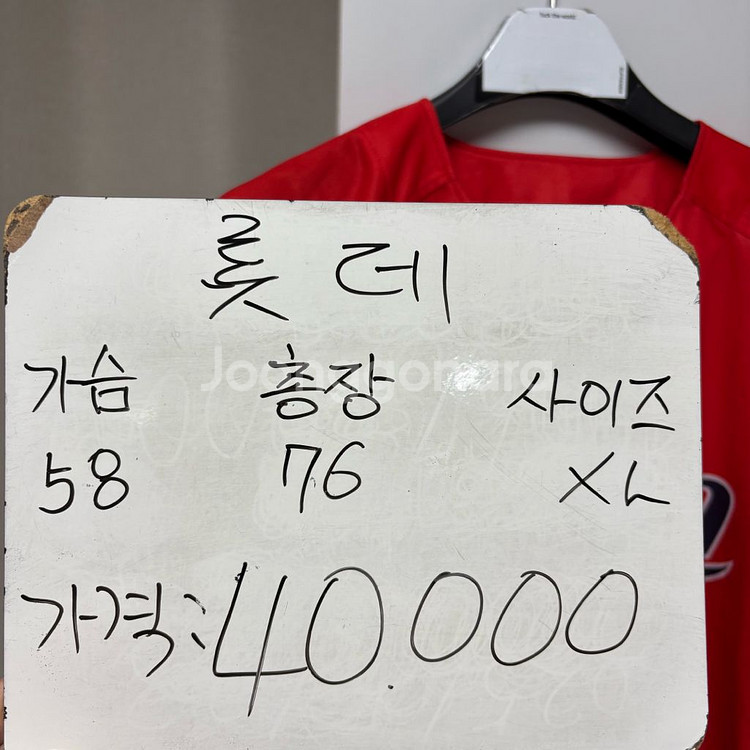 롯데
가슴 총장 사이즈
58 76 XL
가격:40.000
Joonggonara